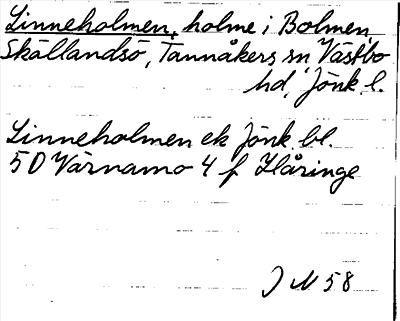 Linneholmen, holme i Bolmen
Skällandsö, Tannåkers sn Västbo
hd, Jönk. l.
Linneholmen ek Jönk. bl.
5 D Värnamo 4 f Håringe
J M 58